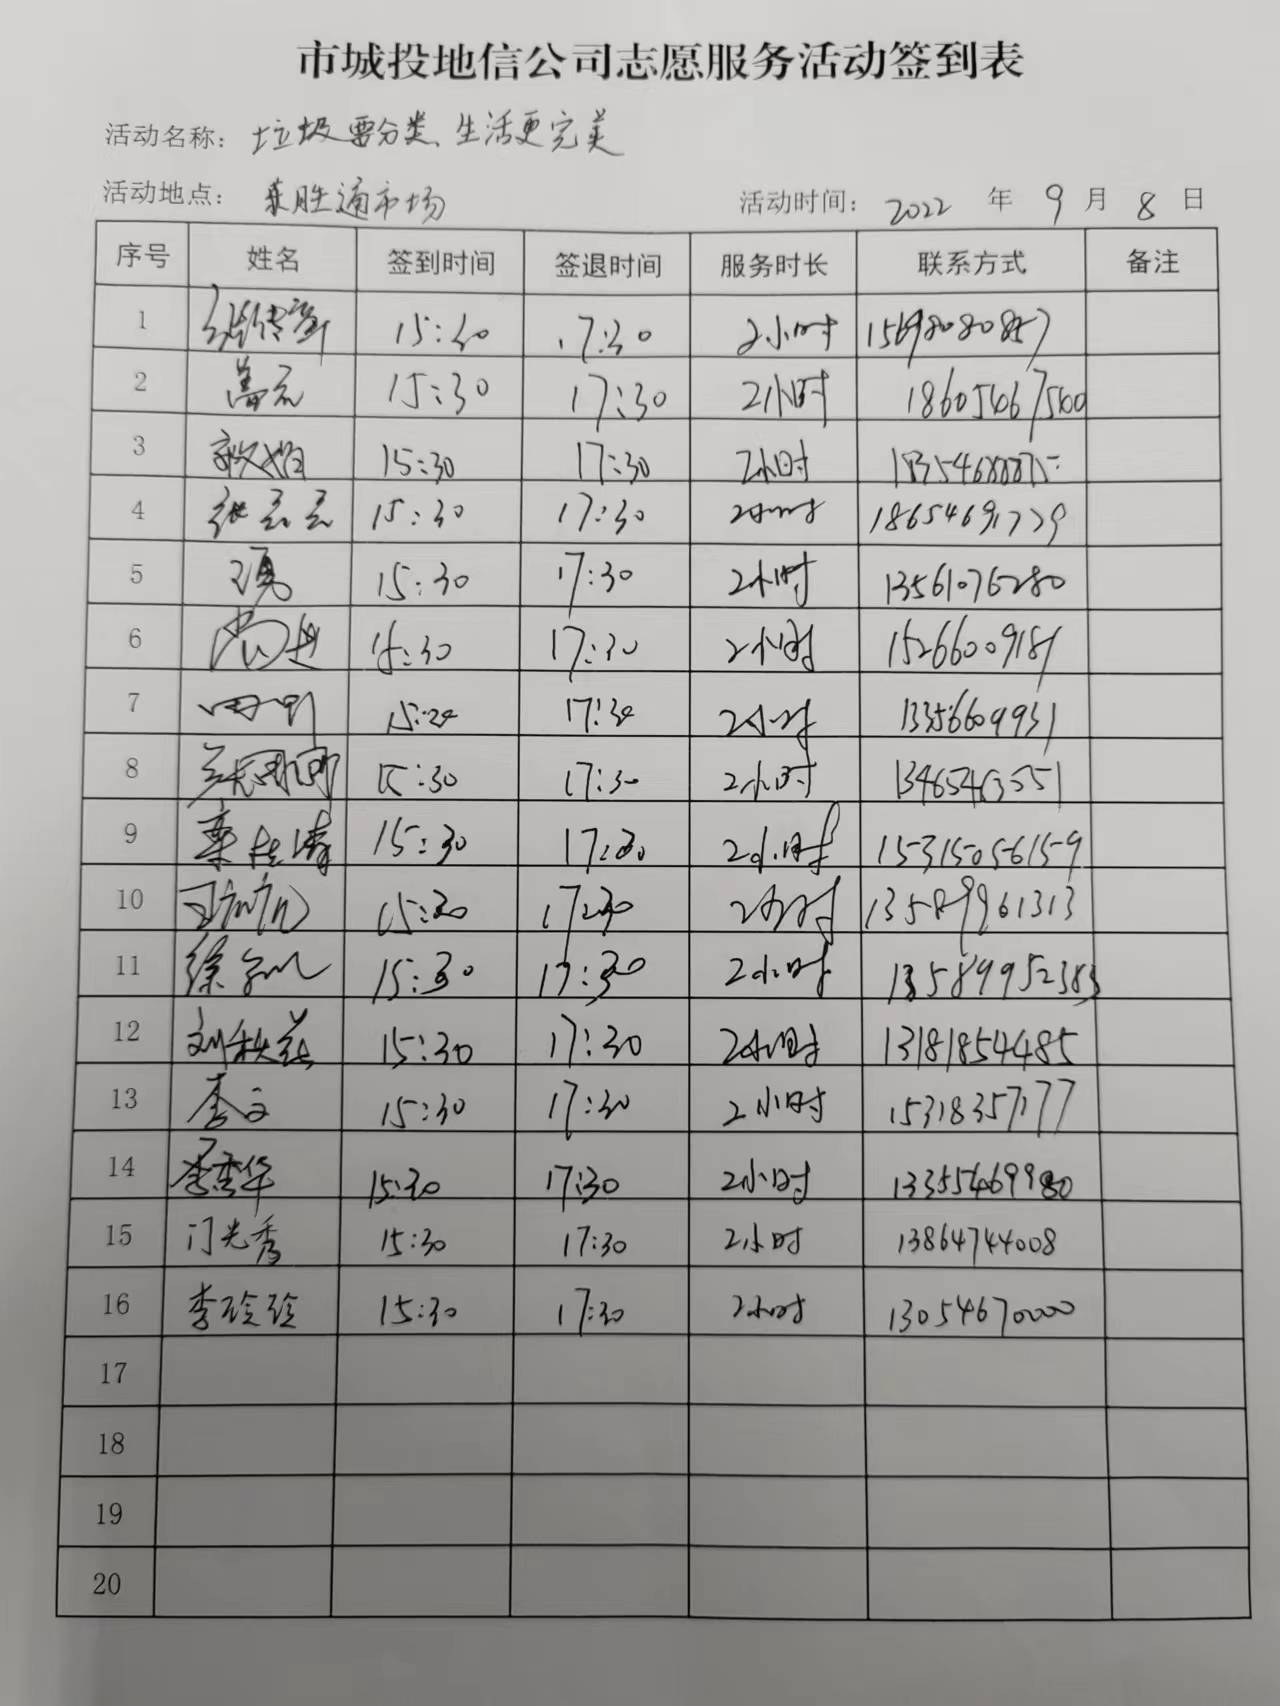 市城投地信公司志愿服务活动签到表
活动名称：垃圾要分类、生活更完美
活动地点：东胜通市场 活动时间：2022 年 9 月 8 日
序号 姓名 签到时间 签退时间 服务时长 联系方式 备注
1 15:30 17:30 2小时 15698080857
2 盖元 15:30 17:30 2小时 18605467500
3 15:30 17:30 2小时
4 张磊磊 15:30 17:30 2小时 18654691779
5 15:30 17:30 2小时 13561076280
6 尚进 15:30 17:30 2小时 15266009181
7 17:30 2小时 13356609931
8 15:30 17:30 2小时 13465463551
9 栾桂涛 15:30 17:30 2小时 15315056159
10 15:30 17:30 2小时 13589961313
11 15:30 17:30 2小时 13589952383
12 刘秋燕 15:30 17:30 2小时 13181854485
13 李文 15:30 17:30 2小时 15318357177
14 李秀华 15:30 17:30 2小时 13355469980
15 门光秀 15:30 17:30 2小时 13864744008
16 李玲玲 15:30 17:30 2小时 13054670000
17
18
19
20